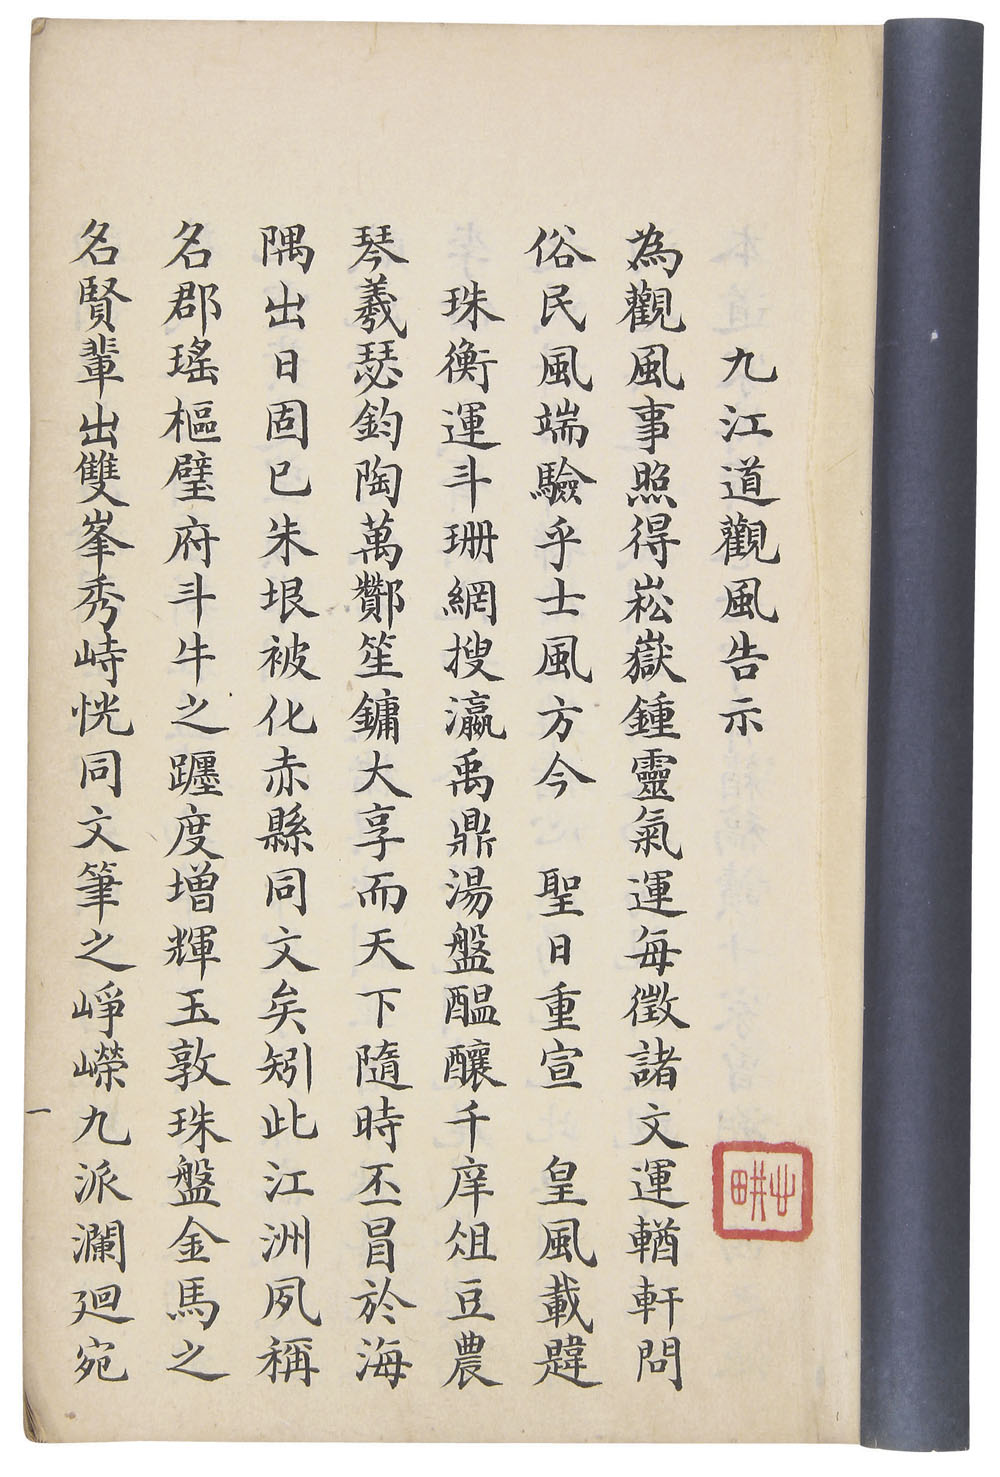 九江道觀風告示
為觀風事照得崧嶽鍾靈氣運每徵諸文運輶軒問
俗民風端驗乎士風方今 聖日重宣 皇風載韙
珠衡運斗珊網搜瀛禹鼎湯盤醞釀千庠俎豆農
琴羲瑟鈞陶萬酇笙鏞大享而天下隨時丕冒於海
隅出日固已朱垠被化赤縣同文矣矧此江洲夙稱
名郡瑤樞璧府斗牛之躔度增輝玉敦珠盤金馬之
名賢輩出雙峯秀峙恍同文筆之崢嶸九派瀾廻宛
一